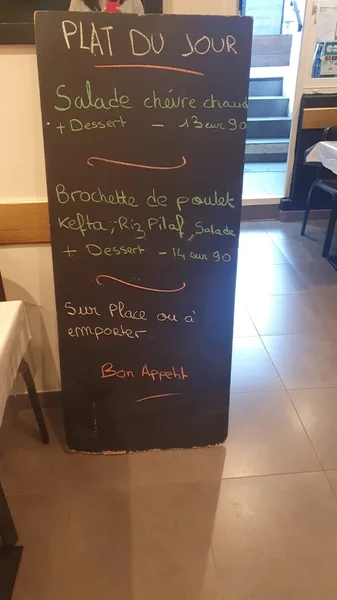 PLAT DU JOUR
Salade chévre chaud
+ Dessert - 13 eur 90
Brochette de poulet
Kefta, Riz Pilaf, Salade
+ Dessert - 14 eur 90
Sur Place ou à
emporter.
Bon Appetit